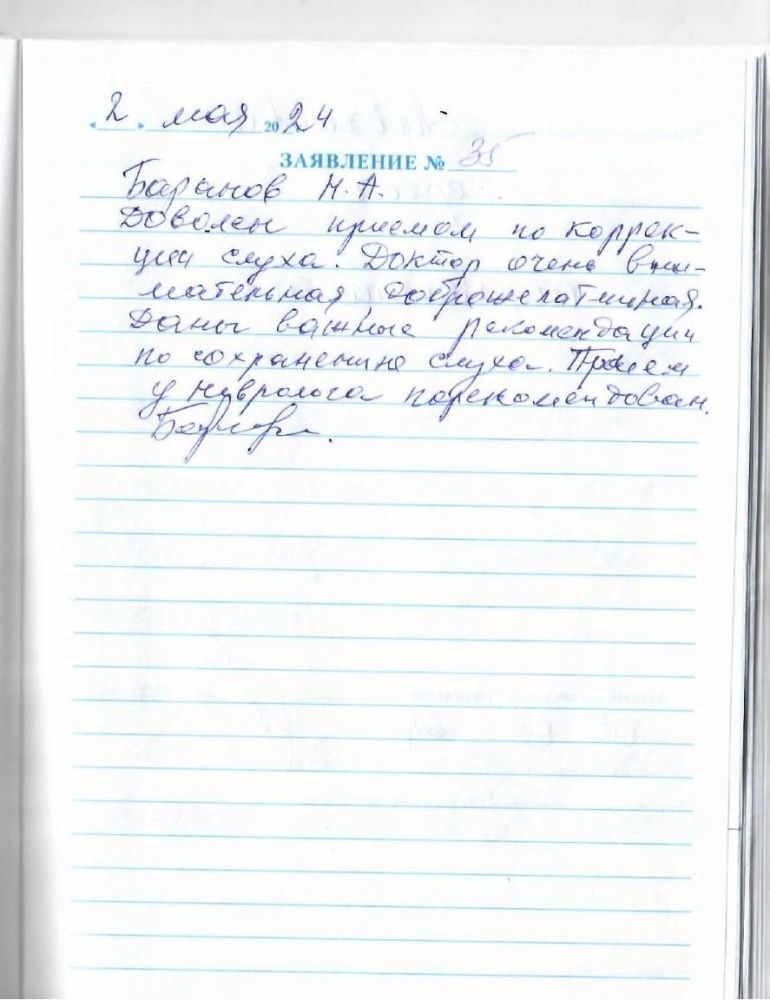 « 2 » мая 2024
ЗАЯВЛЕНИЕ № 35
Баранов Н.А.
Доволен приемом по коррек-
ции слуха. Доктор очень вни-
мательная доброжелатиная.
Даны важные рекомендации
по сохранению слуха. Прием
у невролога порекомендован.